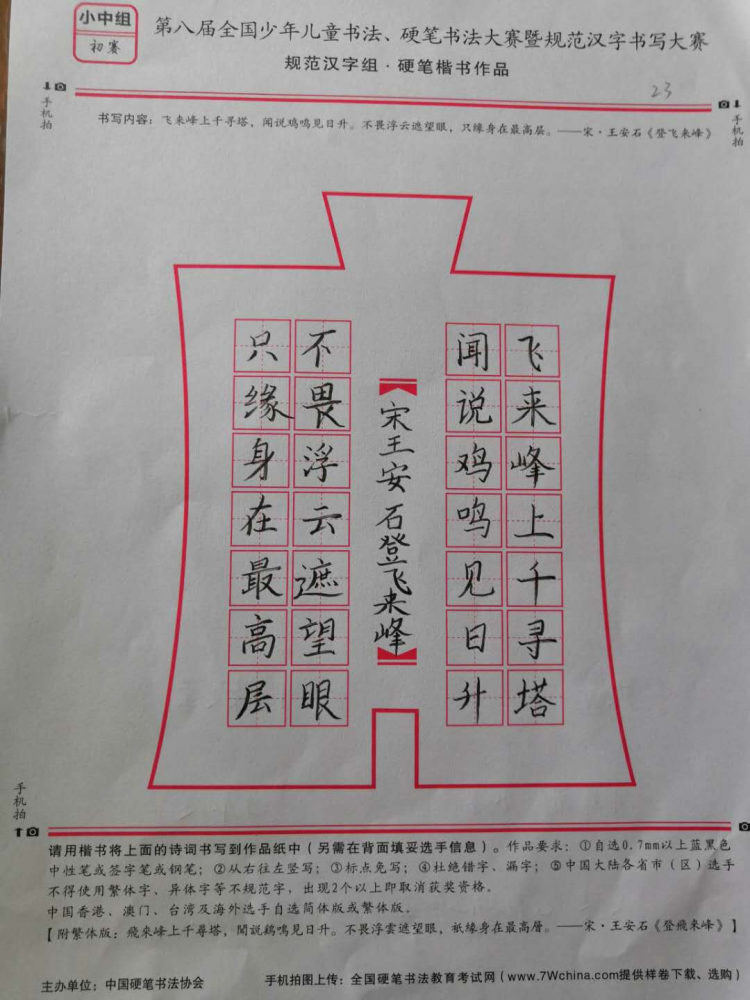 小中组
初赛
第八届全国少年儿童书法、硬笔书法大赛暨规范汉字书写大赛
规范汉字组·硬笔楷书作品
23
手机拍
手机拍
书写内容：飞来峰上千寻塔，闻说鸡鸣见日升。不畏浮云遮望眼，只缘身在最高层。——宋·王安石《登飞来峰》
飞来峰上千寻塔
闻说鸡鸣见日升
宋王安石登飞来峰
不畏浮云遮望眼
只缘身在最高层
手机拍
请用楷书将上面的诗词书写到作品纸中（另需在背面填妥选手信息）。作品要求：①自选0.7mm以上蓝黑色
中性笔或签字笔或钢笔；②从右往左竖写；③标点免写；④杜绝错字、漏字；⑤中国大陆各省市（区）选手
不得使用繁体字、异体字等不规范字，出现2个以上即取消获奖资格。
中国香港、澳门、台湾及海外选手自选简体版或繁体版。
【附繁体版：飛來峰上千尋塔，聞說鷄鳴見日升。不畏浮雲遮望眼，祇緣身在最高層。——宋·王安石《登飛來峰》】
主办单位：中国硬笔书法协会
手机拍图上传：全国硬笔书法教育考试网（www.7Wchina.com提供样卷下载、选购）